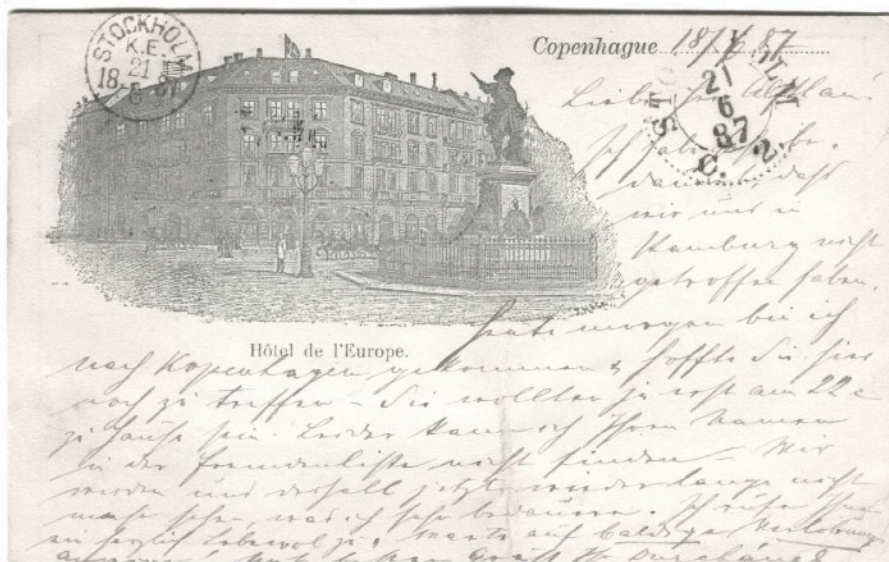 STOCKHOLM
K.E.
21
18 6 87
Copenhague 18/6 87
STOCKHOLM
21
6
87
C. 2.
Lieber
Ich habe
daß
wir uns in
Hamburg nicht
getroffen haben.
Heute morgen bin ich
Hôtel de l'Europe.
nach Kopenhagen gekommen & hoffte Sie hier
noch zu treffen – Sie wollten ja erst am 22
zu Hause sein. Leider kann ich Ihren Namen
in der Fremdenliste nicht finden – Wir
werden uns deshalb jetzt wieder lange nicht
mehr sehen, was ich sehr bedaure. Ich rufe Ihnen
ein herzlich Lebewol zu, warte auf baldige Verlobungs